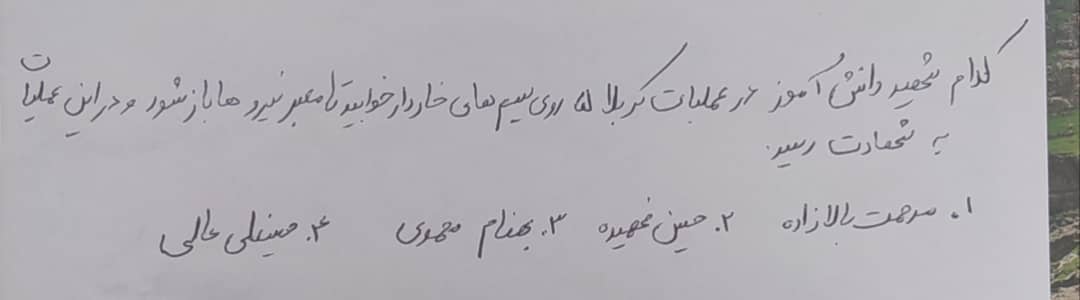 کدام شهید دانش آموز در عملیات کربلا ۵ روی سیم های خاردار خوابید تا معبر نیرو ها باز شود و در این عملیات
به شهادت رسید.
۱. مرحمت بالازاده ۲. حسین فهمیده ۳. بهنام محمدی ۴. حسینعلی عالی